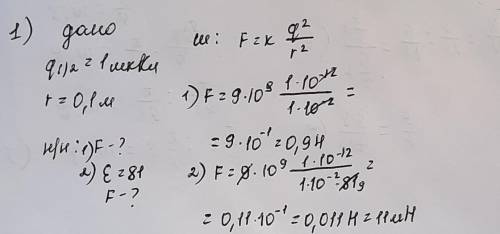 1) дано
q₁,₂ = 1 мкКл
r = 0,1 м
н/н: 1) F - ?
2) ε = 81
F - ?
ш: F = к q²/r²
1) F = 9·10⁹ 1·10⁻¹²/1·10⁻² =
= 9·10⁻¹ = 0,9 Н
2) F = 9·10⁹ 1·10⁻¹²/1·10⁻²·81₉ =
= 0,11·10⁻¹ = 0,011 Н = 11 мН